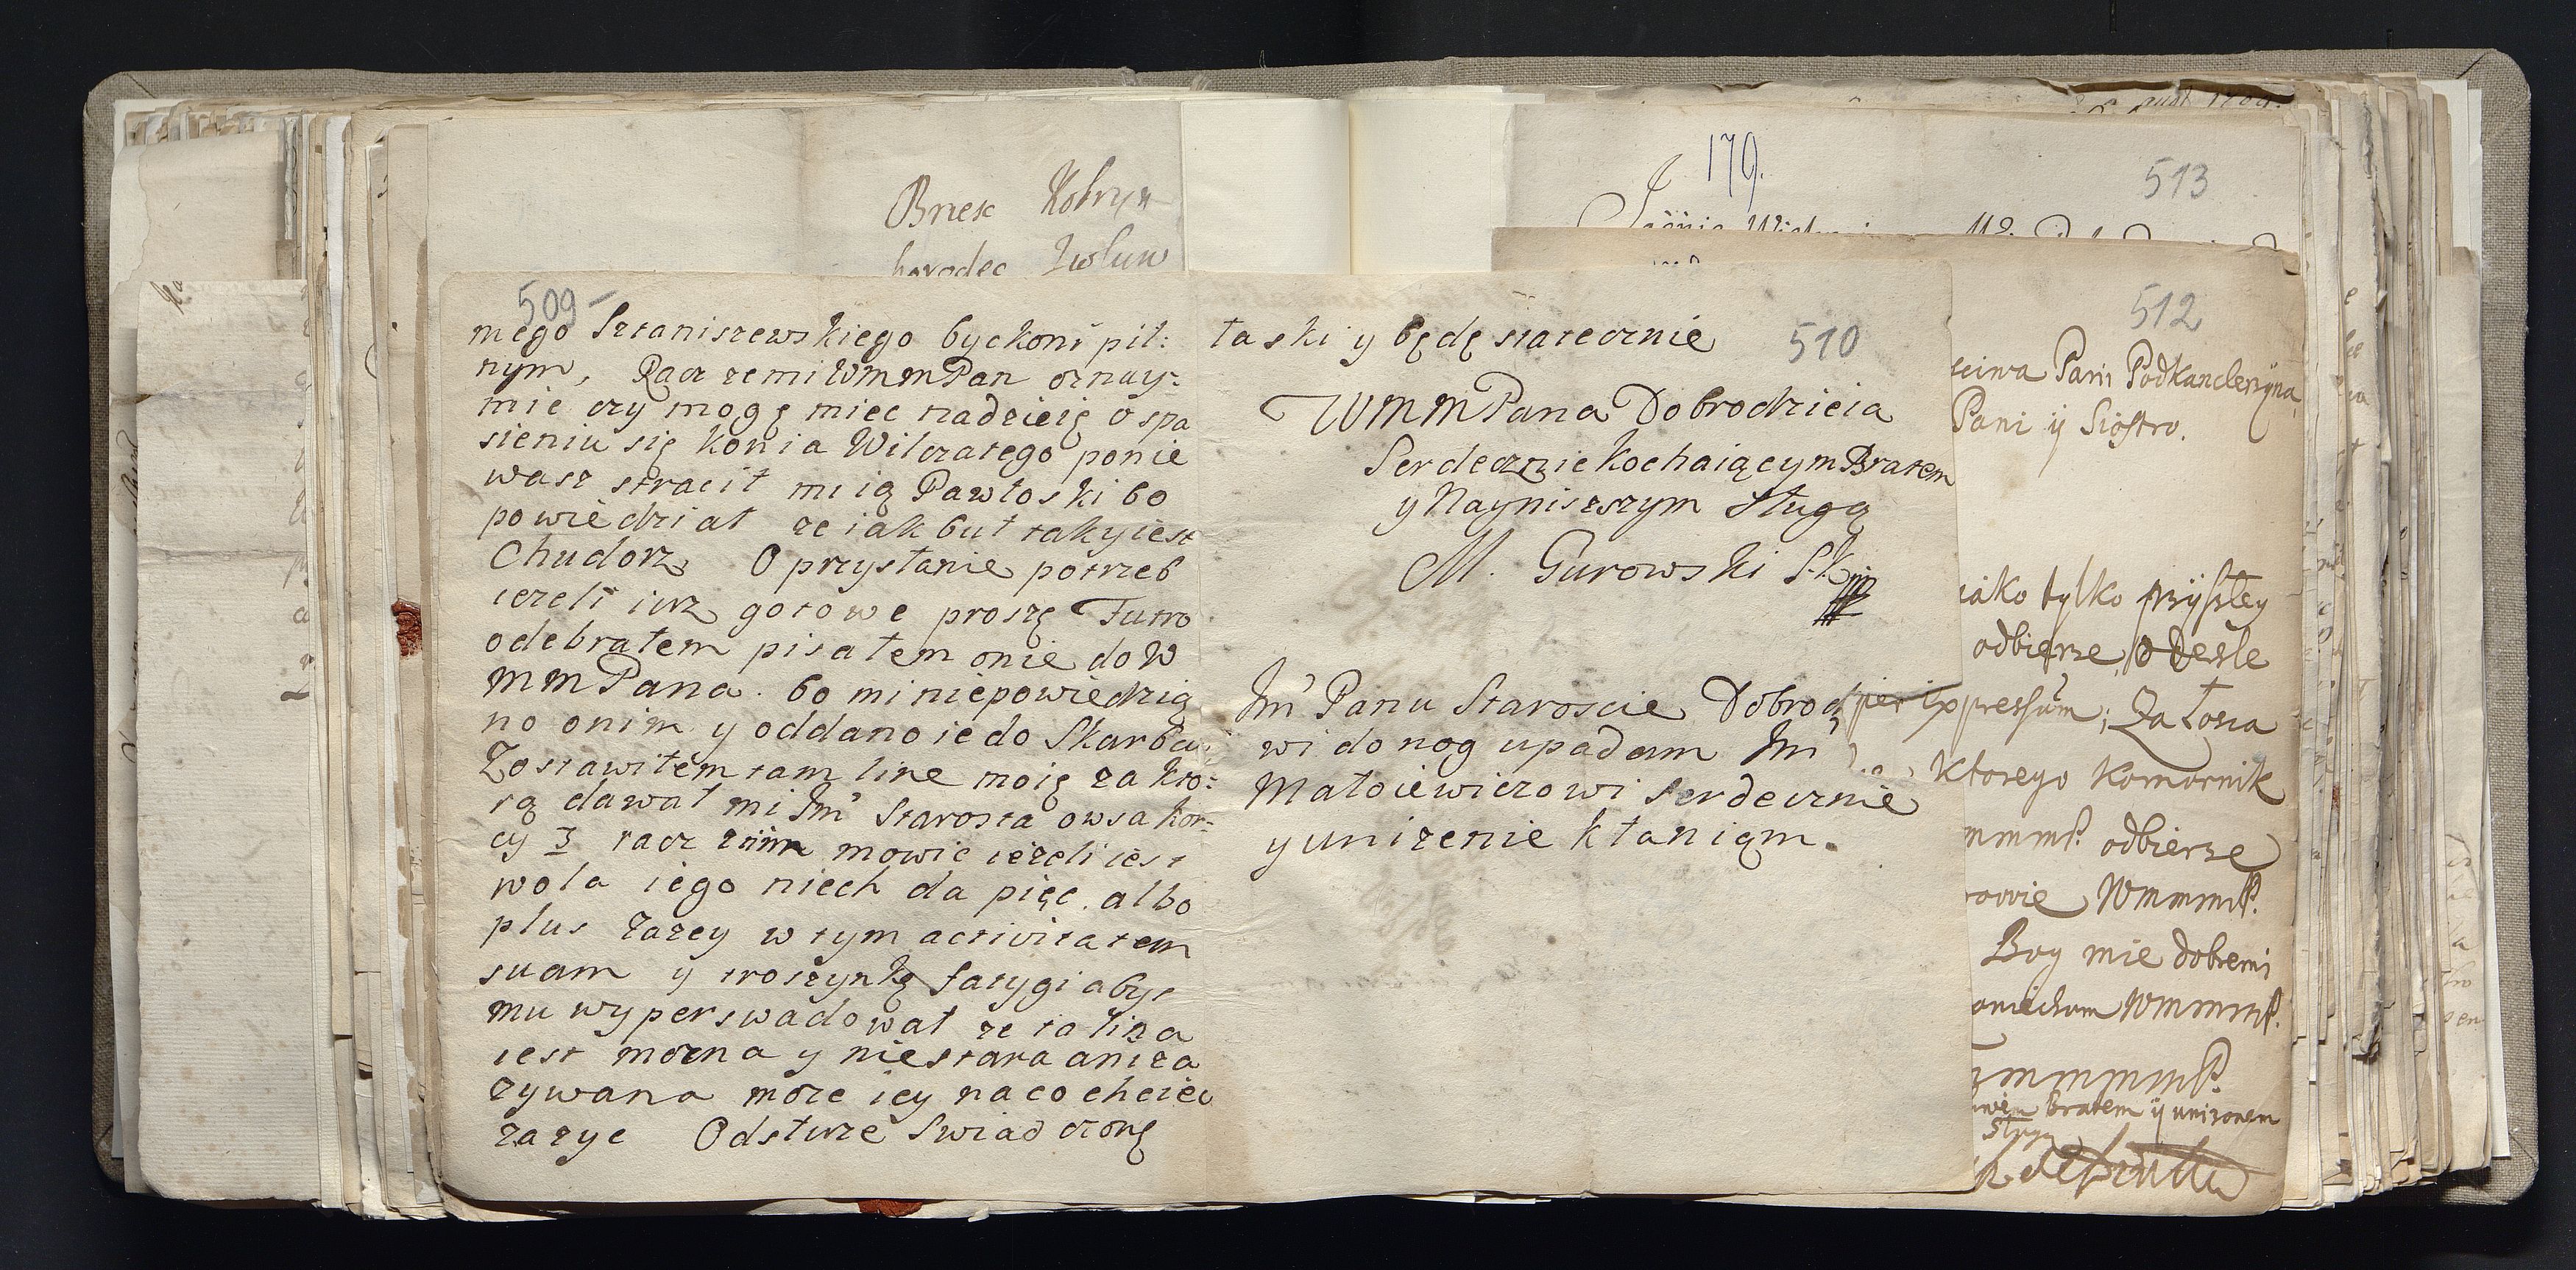 Brzesc Kobryn
horodec
509
mego Sztaniszewskiego byc koni pil:
nym, Racz ze mi WmmPan oznay:
mie czy mogę miec nadzieię o spa
sieniu się konia Wilczatego ponie
wasz stracił mi ią Pawłoski bo
powiedział ze iak but taky iest
Chudorz O przysłanie potrzeb
iezeli iurz gotowe proszę Futro
odebrałem pisałem o nie do W
mm Pana. bo mi niepowiedzia
no o nim y oddano ie do Skarbcu
Zostawiłem tam line moię za kto:
rą dawał mi Jm Starosta owsa kor:
cy 3 racz z nim mowic iezeli iest
wola iego niech da pięc. albo
plus zazey w tym activitatem
suam y troszynkę fatygi abys
mu wyperswadował ze ta lina
iest mozna y niestara ani za
zywana moze iey na co chciec
zazyc Odsłuze Swiadczoną
510
łaski y będę statecznie
WmmPana Dobrodzieia
Serdecznie kochaiącym Bratem
y Nayniszszym Sługą
M. Gurowski
Jm Panu Staroscie Dobrodzie
wi do nog upadam Jm
Małoiewiczowi serdecznie
y unizenie kłaniąm.
179.
513
512
Pani Podkanclerzyna
Pani ÿ Siostro.
iako tylko przÿszłey
odbierze, odeszle
per Expressum; Za Łosia
ktorego Komornik
odbierze
Wmmmsp.
Bog mie dobremi
Wmmmsp.
Bratem ÿ unizonem
Sługą